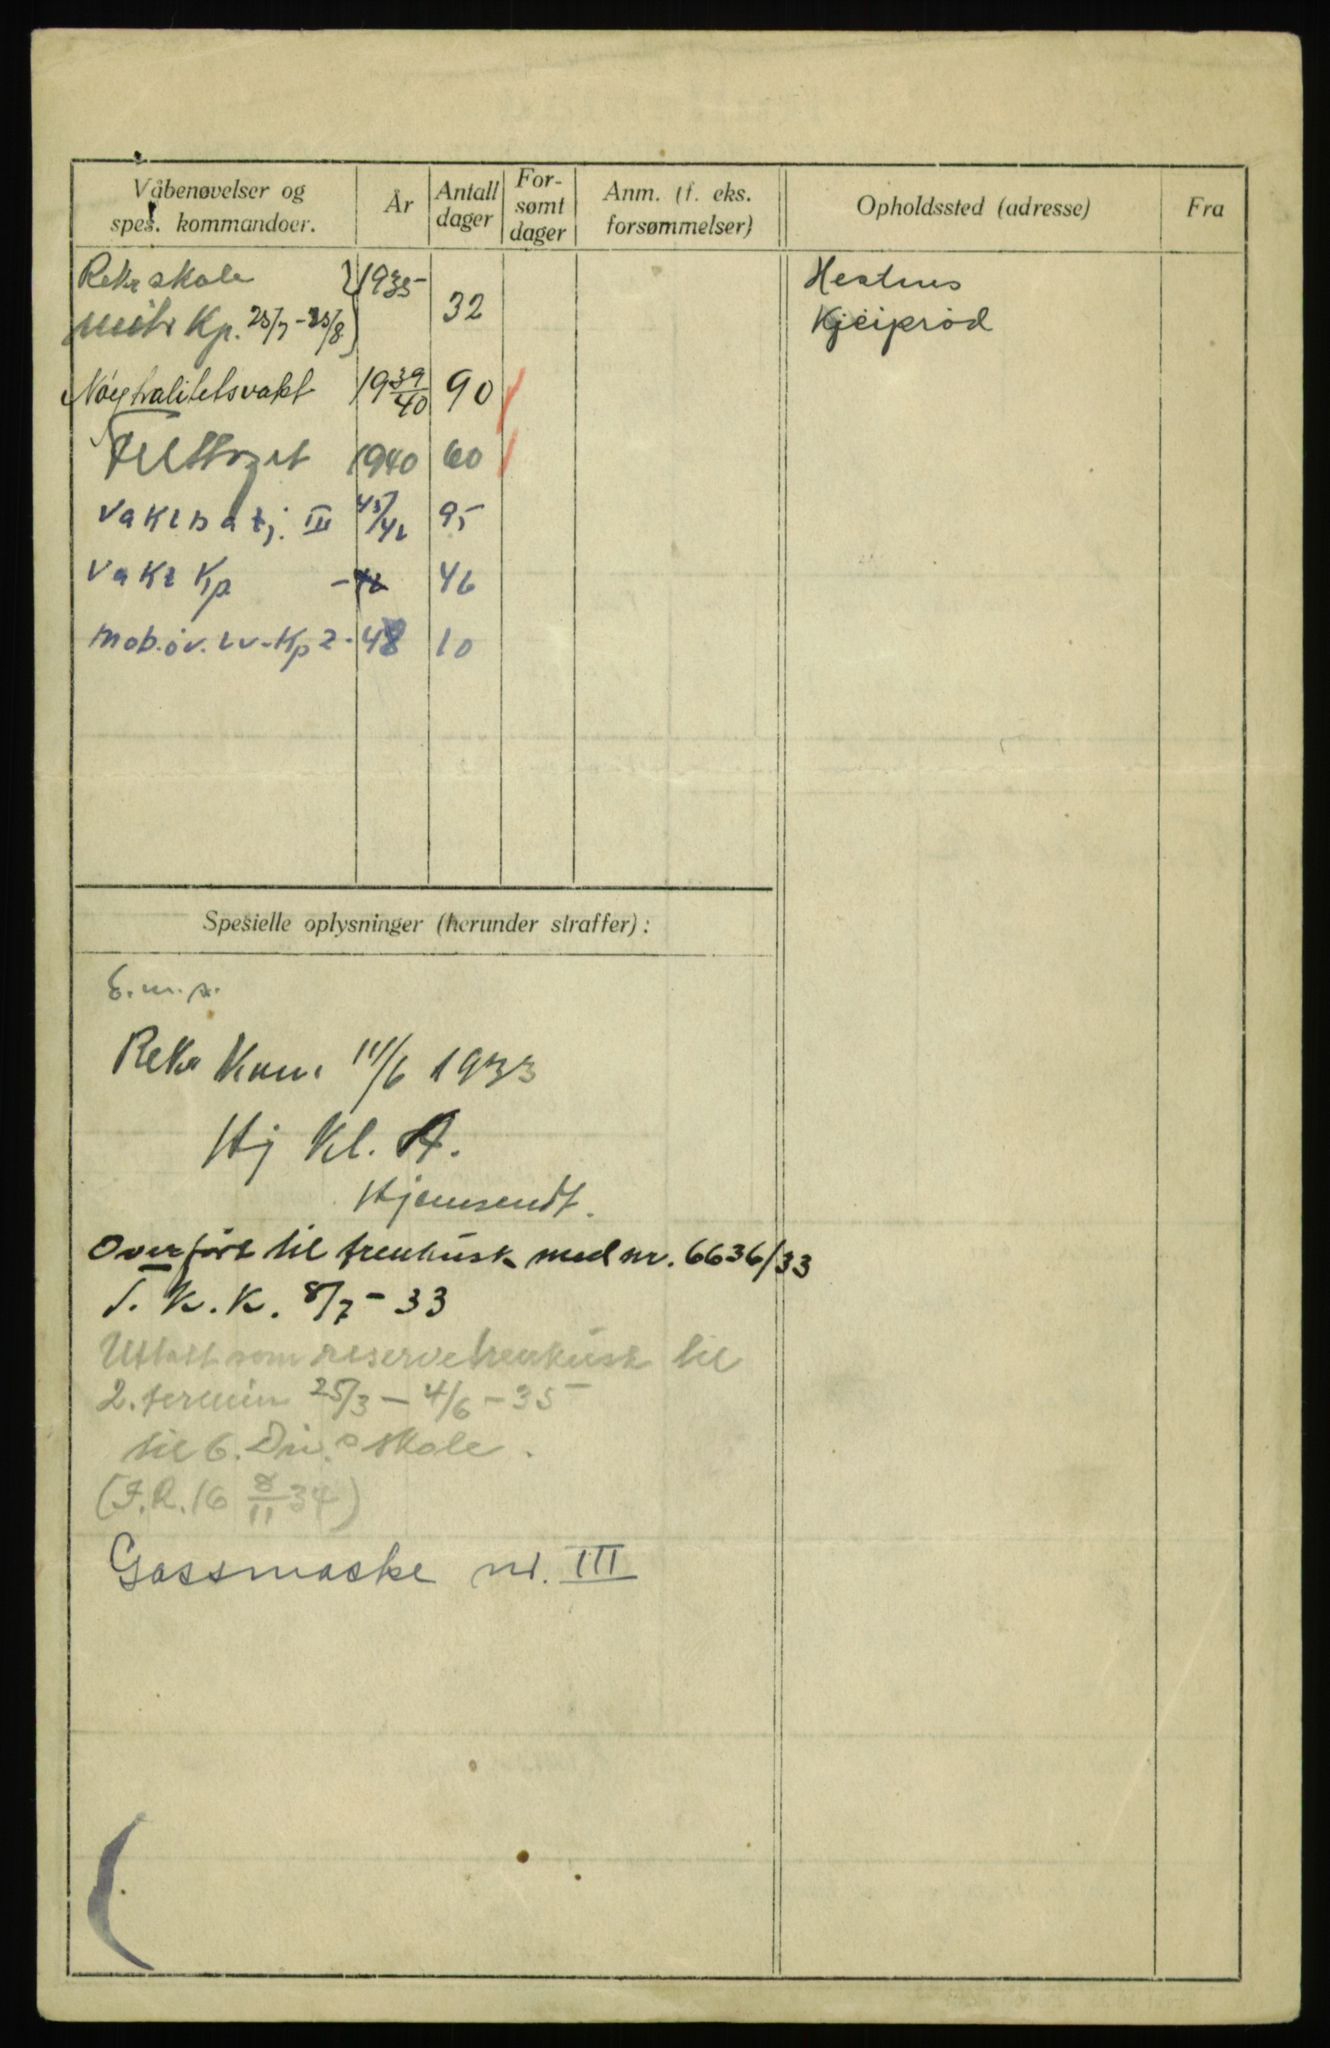 Våbenøvelser og
spes. kommandoer.
År
Antall
dager
For-
sømt
dager
Anm. (f. eks.
forsømmelser)
Opholdssted (adresse)
Fra
Rekr skole 1935
Mitr Kp. 25/7 - 25/8 32
Nøytralitetsvakt 19 39/40 90
Felttoget 1940 60
Vaktbatj. III 45/46 95
Vakt Kp - 46 46
Mob.øv. Lv-Kp 2 - 48 10
Hestnes
Kjeiprød
Spesielle oplysninger (herunder straffer):
E.m.s.
Rekr Kom. 11/6 1933
Hj Kl. A.
Hjemsendt.
Overført til trenkusk med nr. 6636/33
T. K. K. 8/7 - 33
Uttatt som reservetrenkusk til
2. termin 25/3 - 4/6 - 35
til 6. Div.s skole.
(I.R. 16 8/11 34)
Gassmaske nr. III